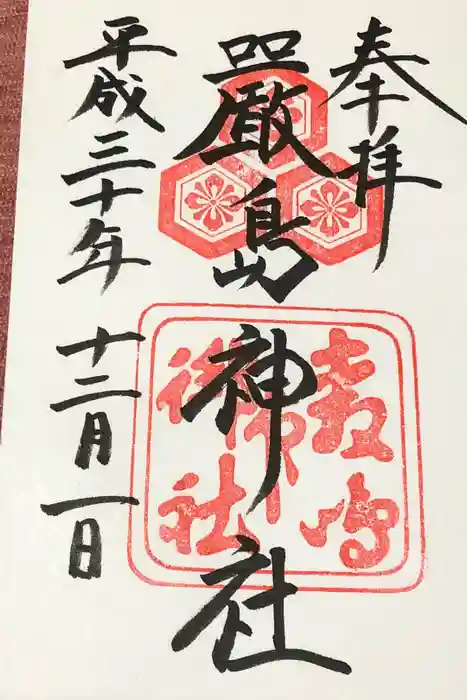 奉拝
嚴島神社
平成三十年十二月一日